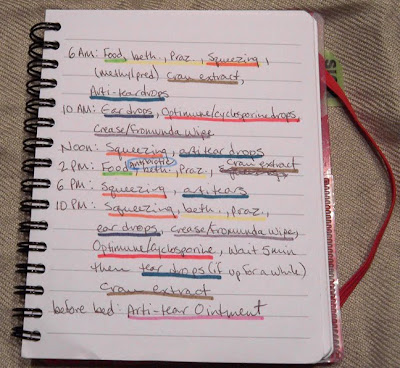 6 AM: Food, beth., Praz., Squeezing,
(methylpred) Cran extract,
Arti-tear drops
10 AM: Ear drops, Optimune/cyclosporine drops
Crease/Fromunda Wipe
Noon: Squeezing, arti tear drops
Cran extract
2 PM: Food, antibiotic beth., Praz.,
6 PM: Squeezing, arti tears
10 PM: Squeezing, beth., praz,
ear drops, Crease/Fromunda wipe,
Optimune/cyclosporine, Wait 5 min
then tear drops (if up for a while)
Cran extract
before bed: Arti-tear Ointment